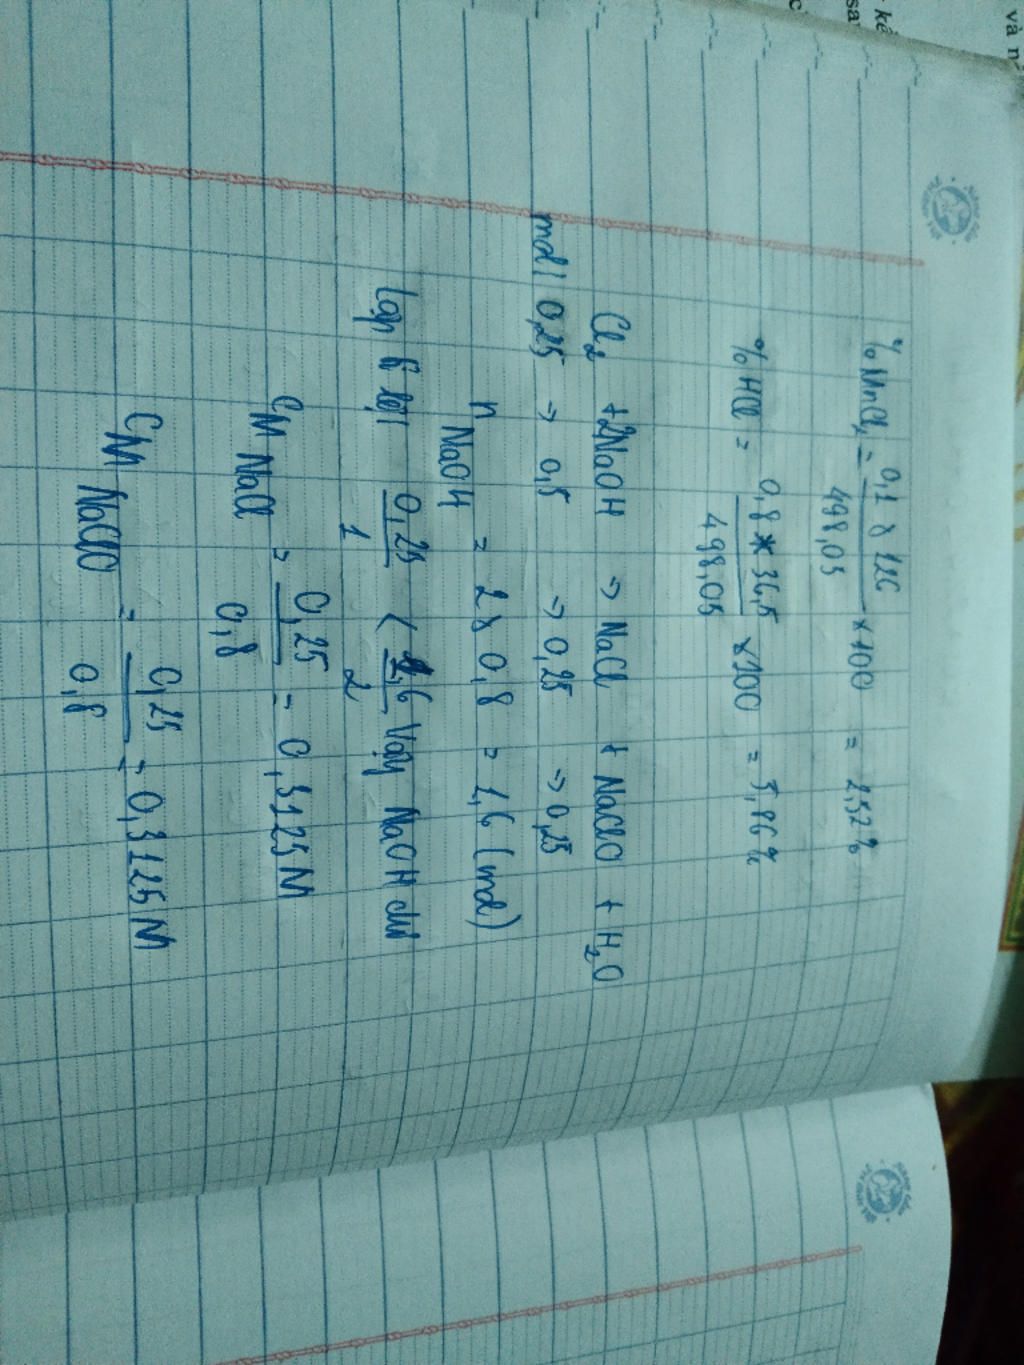 % MnCl₂ = 0,1 x 126 / 498,05 x 100 = 2,52%
% HCl = 0,8 * 36,5 / 498,05 x 100 = 5,86%
Cl₂ + 2NaOH → NaCl + NaClO + H₂O
mol 0,25 → 0,5 → 0,25 → 0,25
n NaOH = 2 x 0,8 = 1,6 (mol)
Lập tỉ lệ 0,25 / 1 < 1,6 / 2 Vậy NaOH dư
CM NaCl = 0,25 / 0,8 = 0,3125 M
CM NaClO = 0,25 / 0,8 = 0,3125 M